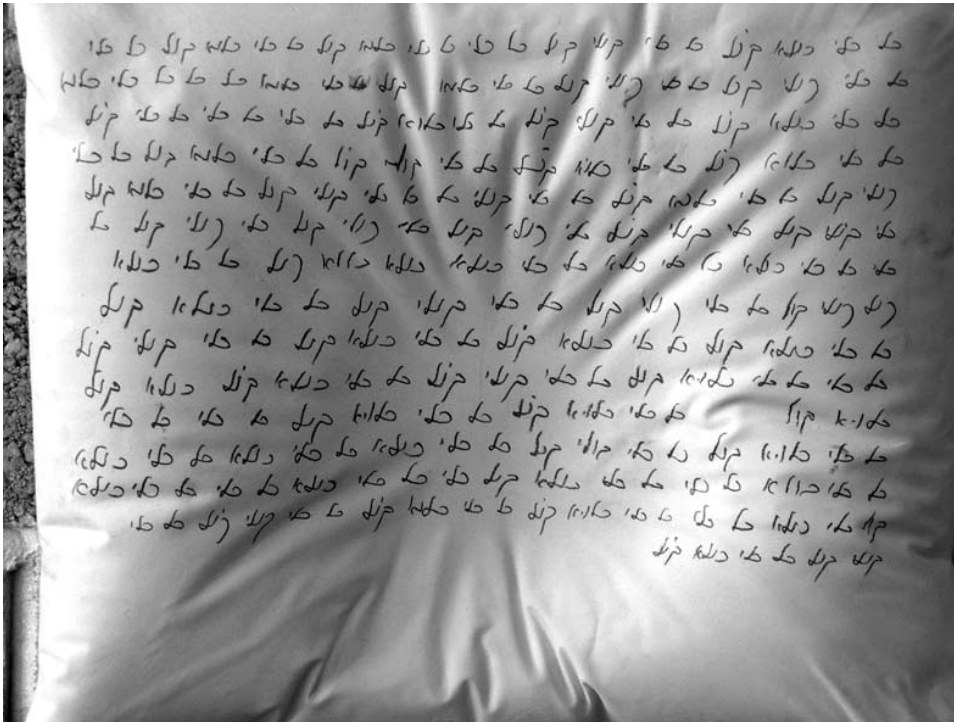 כל כלי כולא קול כל כלי קולי קול כל כלי כל כלי כלוא קול כל כלי כלוא קול כל כלי
כל כלי קולי קול כל כלי קולי קול כל כלי כלוא קול כלי כלוא כל כל כל כלי כלוא
כל כלי כולא קול כל כלי קולי קול כל כלי כלוא קול כל כלי כל כלי כל כלי קול
כל כלי כלוא קול כל כלי כלוא קול כל כלי קול כל כלי כלוא קול כל כלי
קולי קול כל כלי כלוא קול כל כלי קולי כל כל כלי קולי קול כל כלי כלוא קול
כלי קולי קול כלי קולי קול כלי קולי קול כלי קולי קול כלי קולי קול כל
כלי כל כלי כולא כל כלי כולא כל כלי כולא כולא כלוא קול כל כלי כולא
קול קולי קול כל כלי קולי קול כל כלי קולי קול כל כלי כולא קול
כל כלי כולא קול כל כלי כולא קול כל כלי כולא קול כל כלי קולי קול
כל כלי כל כלי כלוא קול כל כלי קולי קול כל כלי כולא קול כולא קול
כלוא קול כל כלי כלוא קול כל כלי כלוא קול כל כלי כל כלי
כל כלי כלוא קול כל כלי קולי קול כל כלי כולא כל כלי כולא כל כלי כולא
כל כלי כולא כל כלי כל כלי כולא קול כלי כל כלי כולא כל כלי כל כלי כולא
קול כלי כולא כל כל כל כלי כלוא קול כל כלי כלוא קול כל כלי קולי קול כל כלי
קולי קול כל כלי כולא קול